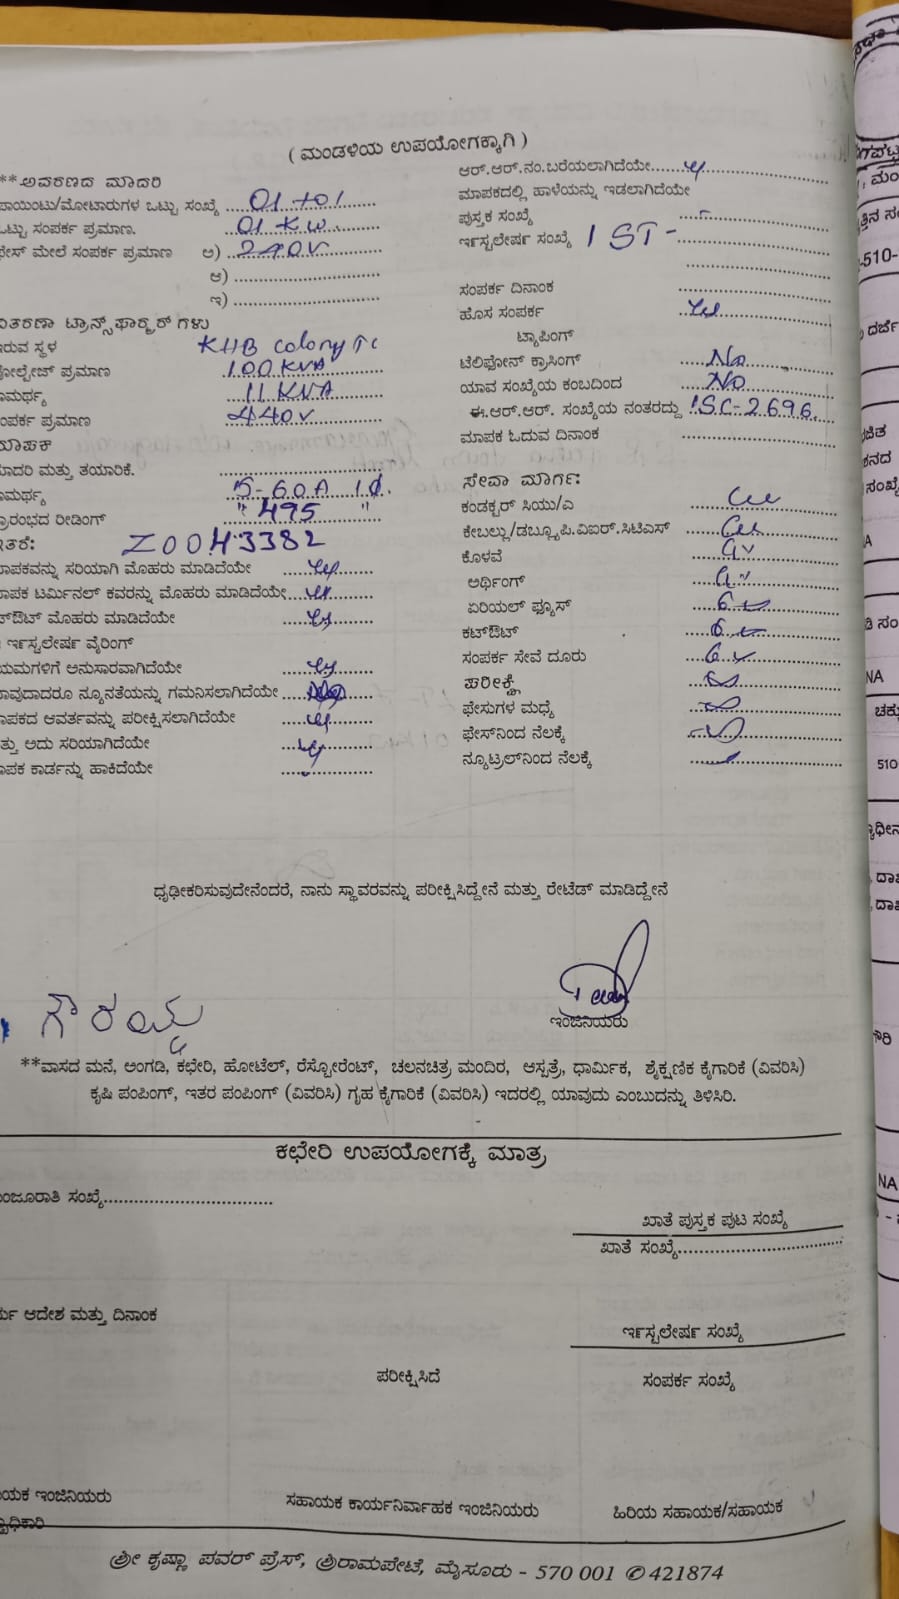 ( ಮಂಡಳಿಯ ಉಪಯೋಗಕ್ಕಾಗಿ )
**ಅವರಣದ ಮಾದರಿ
ಪಾಯಿಂಟು/ಮೋಟಾರುಗಳ ಒಟ್ಟು ಸಂಖ್ಯೆ 01 +01
ಒಟ್ಟು ಸಂಪರ್ಕ ಪ್ರಮಾಣ. 01 KW
ಫೇಸ್ ಮೇಲೆ ಸಂಪರ್ಕ ಪ್ರಮಾಣ ಅ) 240V
ಆ)
ಇ)
ವಿತರಣಾ ಟ್ರಾನ್ಸ್‌ಫಾರ್ಮರ್ ಗಳು
ಇರುವ ಸ್ಥಳ KHB colony Tc
ವೋಲ್ಟೇಜ್ ಪ್ರಮಾಣ 100 KVA
ಸಾಮರ್ಥ್ಯ 11 KVA
ಸಂಪರ್ಕ ಪ್ರಮಾಣ 440V
ಮಾಪಕ
ಮಾದರಿ ಮತ್ತು ತಯಾರಿಕೆ.
ಸಾಮರ್ಥ್ಯ 5-60A 1Ø.
ಪ್ರಾರಂಭದ ರೀಡಿಂಗ್ " 495 "
ಇತರೆ: Z0043382
ಮಾಪಕವನ್ನು ಸರಿಯಾಗಿ ಮೊಹರು ಮಾಡಿದೆಯೇ
ಮಾಪಕ ಟರ್ಮಿನಲ್ ಕವರನ್ನು ಮೊಹರು ಮಾಡಿದೆಯೇ
ಕಟ್‌ಔಟ್ ಮೊಹರು ಮಾಡಿದೆಯೇ
ಈ ಇನ್‌ಸ್ಟಲೇಷನ್ ವೈರಿಂಗ್
ನಿಯಮಗಳಿಗೆ ಅನುಸಾರವಾಗಿದೆಯೇ
ಯಾವುದಾದರೂ ನ್ಯೂನತೆಯನ್ನು ಗಮನಿಸಲಾಗಿದೆಯೇ
ಮಾಪಕದ ಆವರ್ತವನ್ನು ಪರೀಕ್ಷಿಸಲಾಗಿದೆಯೇ
ಮತ್ತು ಅದು ಸರಿಯಾಗಿದೆಯೇ
ಮಾಪಕ ಕಾರ್ಡನ್ನು ಹಾಕಿದೆಯೇ
ಆರ್.ಆರ್.ನಂ.ಬರೆಯಲಾಗಿದೆಯೇ
ಮಾಪಕದಲ್ಲಿ ಹಾಳೆಯನ್ನು ಇಡಲಾಗಿದೆಯೇ
ಪುಸ್ತಕ ಸಂಖ್ಯೆ
ಇನ್‌ಸ್ಟಲೇಷನ್ ಸಂಖ್ಯೆ 1 ST -
ಸಂಪರ್ಕ ದಿನಾಂಕ
ಹೊಸ ಸಂಪರ್ಕ
ಟ್ಯಾಪಿಂಗ್
ಟೆಲಿಫೋನ್ ಕ್ರಾಸಿಂಗ್ No
ಯಾವ ಸಂಖ್ಯೆಯ ಕಂಬದಿಂದ No
ಈ.ಆರ್.ಆರ್. ಸಂಖ್ಯೆಯ ನಂತರದ್ದು ISC-2696
ಮಾಪಕ ಓದುವ ದಿನಾಂಕ
ಸೇವಾ ಮಾರ್ಗ:
ಕಂಡಕ್ಟರ್ ಸಿಯು/ಎ
ಕೇಬಲ್ಲು/ಡಬ್ಲ್ಯೂ.ಪಿ.ಎಐರ್.ಸಿಟಿಎಸ್
ಕೊಳವೆ
ಅರ್ಥಿಂಗ್
ಏರಿಯಲ್ ಫ್ಯೂಸ್
ಕಟ್‌ಔಟ್
ಸಂಪರ್ಕ ಸೇವೆ ದೂರು
ಪರೀಕ್ಷೆ
ಫೇಸುಗಳ ಮಧ್ಯೆ
ಫೇಸ್‌ನಿಂದ ನೆಲಕ್ಕೆ
ನ್ಯೂಟ್ರಲ್‌ನಿಂದ ನೆಲಕ್ಕೆ
ಧೃಢೀಕರಿಸುವುದೇನೆಂದರೆ, ನಾನು ಸ್ಥಾವರವನ್ನು ಪರೀಕ್ಷಿಸಿದ್ದೇನೆ ಮತ್ತು ರೇಟೆಡ್ ಮಾಡಿದ್ದೇನೆ
ಗೌರಯ್ಯ
ಇಂಜಿನಿಯರು
**ವಾಸದ ಮನೆ, ಅಂಗಡಿ, ಕಛೇರಿ, ಹೋಟೆಲ್, ರೆಸ್ಟೋರೆಂಟ್, ಚಲನಚಿತ್ರ ಮಂದಿರ, ಆಸ್ಪತ್ರೆ, ಧಾರ್ಮಿಕ, ಶೈಕ್ಷಣಿಕ ಕೈಗಾರಿಕೆ (ವಿವರಿಸಿ)
ಕೃಷಿ ಪಂಪಿಂಗ್, ಇತರ ಪಂಪಿಂಗ್ (ವಿವರಿಸಿ) ಗೃಹ ಕೈಗಾರಿಕೆ (ವಿವರಿಸಿ) ಇದರಲ್ಲಿ ಯಾವುದು ಎಂಬುದನ್ನು ತಿಳಿಸಿರಿ.
ಕಛೇರಿ ಉಪಯೋಗಕ್ಕೆ ಮಾತ್ರ
ಮಂಜೂರಾತಿ ಸಂಖ್ಯೆ
ಖಾತೆ ಪುಸ್ತಕ ಪುಟ ಸಂಖ್ಯೆ
ಖಾತೆ ಸಂಖ್ಯೆ
ಆದೇಶ ಮತ್ತು ದಿನಾಂಕ
ಇನ್‌ಸ್ಟಲೇಷನ್ ಸಂಖ್ಯೆ
ಪರೀಕ್ಷಿಸಿದೆ
ಸಂಪರ್ಕ ಸಂಖ್ಯೆ
ಸಹಾಯಕ ಇಂಜಿನಿಯರು
ಸಹಾಯಕ ಕಾರ್ಯನಿರ್ವಾಹಕ ಇಂಜಿನಿಯರು
ಹಿರಿಯ ಸಹಾಯಕ/ಸಹಾಯಕ
ಶ್ರೀ ಕೃಷ್ಣಾ ಪವರ್ ಪ್ರೆಸ್, ಶ್ರೀರಾಮಪೇಟೆ, ಮೈಸೂರು - 570 001 ✆421874